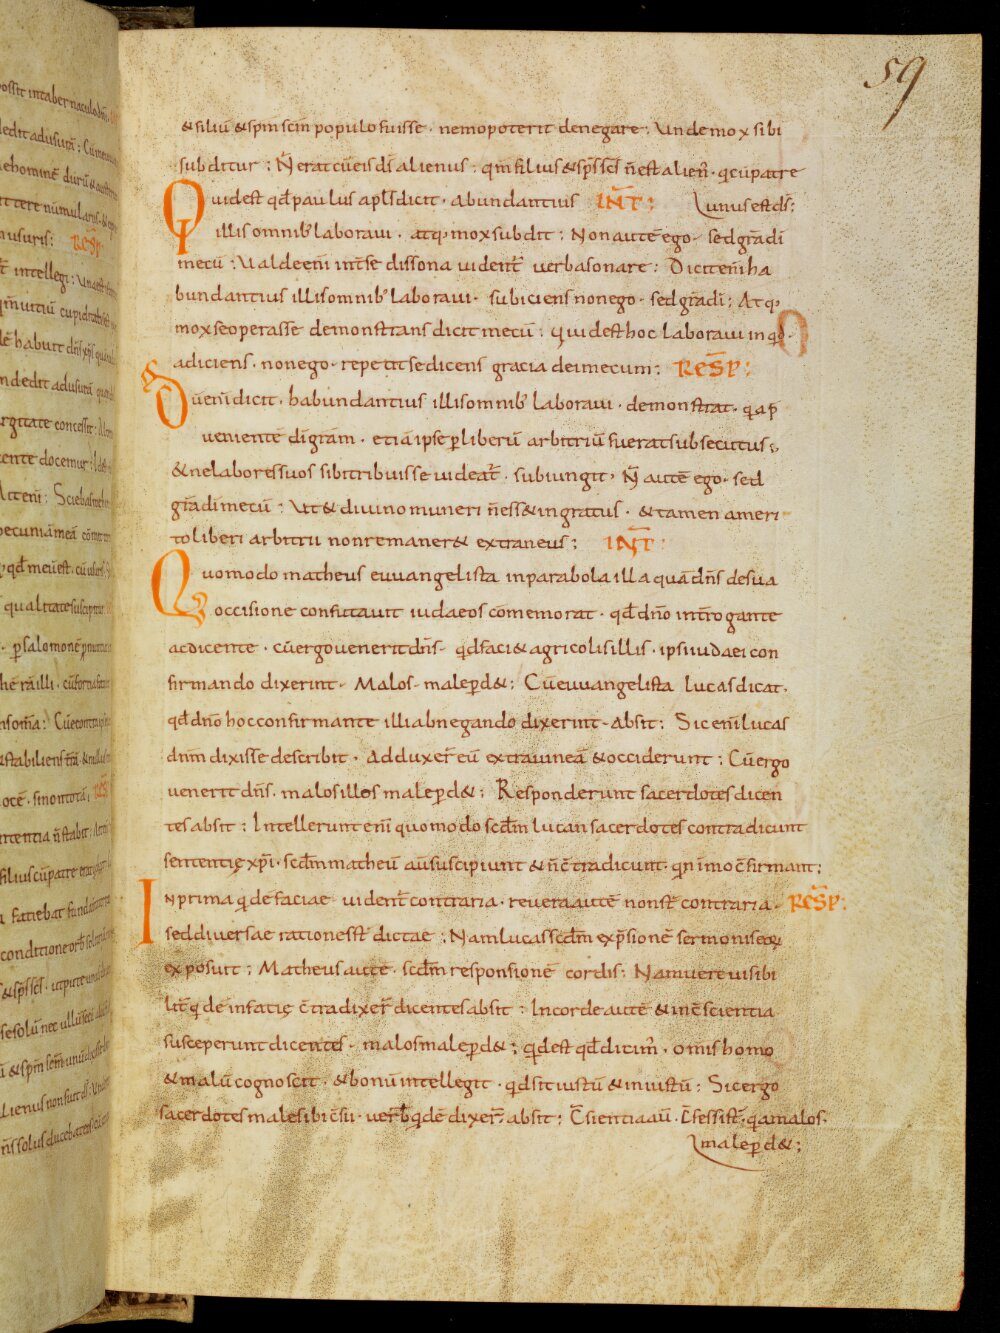 59
& filiũ & spm̃ scm̃ in populo fuisse · nemo poterit denegare ; Unde mox sibi
subditur ; Ñ erat cũ eis ds̃ alienus · qm̃ filius & sps̃ scs̃ ñ est alien᷒ · q̃ cũ patre
Quid est qd̃ paulus apls̃ dicit · abundantius INT̃ ; unus est ds̃ ;
illis omnib᷒ laboraui · atq; mox subdit ; Non autẽ ego · sed gr̃a dĩ
mecũ ; Ualde enĩ int̃ se dissona uident̃ uerba sonare ; Dicit enĩ ha
bundantius illis omnib᷒ laboraui · subiciens non ego · sed gr̃a dĩ ; Atq;
mox se operasse demonstrans dicit mecũ ; Quid est hoc laboraui in qo
adiciens · non ego · repetit se dicens gracia dei mecum ; RESP̃ ;
Dũ enĩ dicit · habundantius illis omnib᷒ laboraui · demonstrat · q̃a p̃
ueniente dĩ gr̃am · etiã ipse ꝑ liberũ arbitriũ fuerat subsecutus ;
& ne labores suos sibi tribuisse uideat̃ · subiungit · Ñ autẽ ego · sed
gr̃a dĩ mecũ ; Ut & diuino muneri ñ ess& ingratus · & tamen a meri
to liberi arbitrii non remaner& extraneus ; INT̃ ;
Quomodo matheus euuangelista in parabola illa quã dñs de sua
occisione confutauit iudaeos cõmemorat · qd̃ dñο intr̃ogante
ac dicente · cũ ergo uenerit dñs · qd̃ faci& agricolis illis · ipsi iudaei con
firmando dixerint · Malos · male ꝑd& ; Cũ euuangelista lucas dicat ·
qd̃ dñο hoc confirmante illi abnegando dixerint · absit ; Sic enĩ lucas
dñm dixisse describit · Adduxer̃ eũ extra uineã & occiderunt ; Cũ ergo
uenerit dñs · malos illos male ꝑd& ; Responderunt sacerdotes dicen
tes absit ; Intellerunt enĩ quomodo scd̃m lucan sacerdotes contradicunt
sententię xp̃ı · scd̃m matheũ aũ suscipiunt & ñ c̃tradicunt · q̃n immo c̃firmant ;
In prima q̃de faciae uident̃ contraria · reuera autẽ non st̃ contraria · RESP̃ ;
sed diuersae rationes st̃ dictae ; Nam lucas scd̃m exp̃sionẽ sermonis eoꝝ
exposuit ; Matheus autẽ · scd̃m responsionẽ cordis ; Nam uere uisibi
lit̃ q̃dẽ in facię c̃tradixer̃ dicentes absit ; In corde autẽ & in c̃scientia
susceperunt dicentes · malos male ꝑd& ; qd̃ est qd̃ dicim᷒ · omĩs homo
& malũ cognoscit · & bonũ intellegit · qd̃ sit iustũ & iniustũ ; Sic ergo
sacerdotes male sibi c̃sii · uerb᷒ q̃dẽ dixer̃ · absit ; C̃sientia aũ · c̃fessi st̃ · q̃a malos ·
male ꝑd& ;